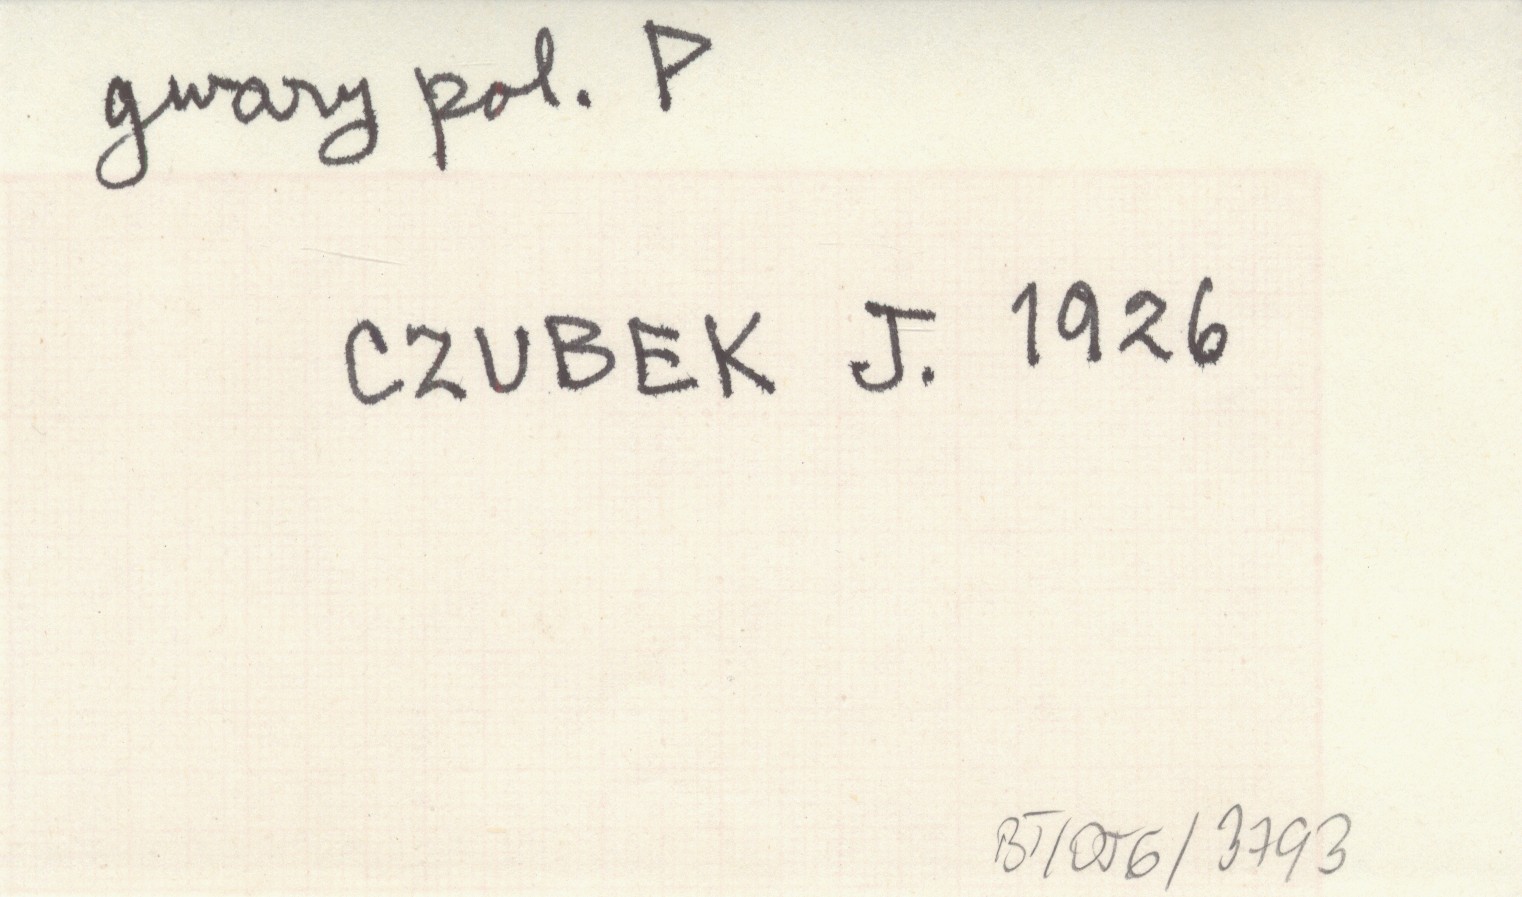 gwary pol. P
CZUBEK J. 1926
BT/OJG/3793